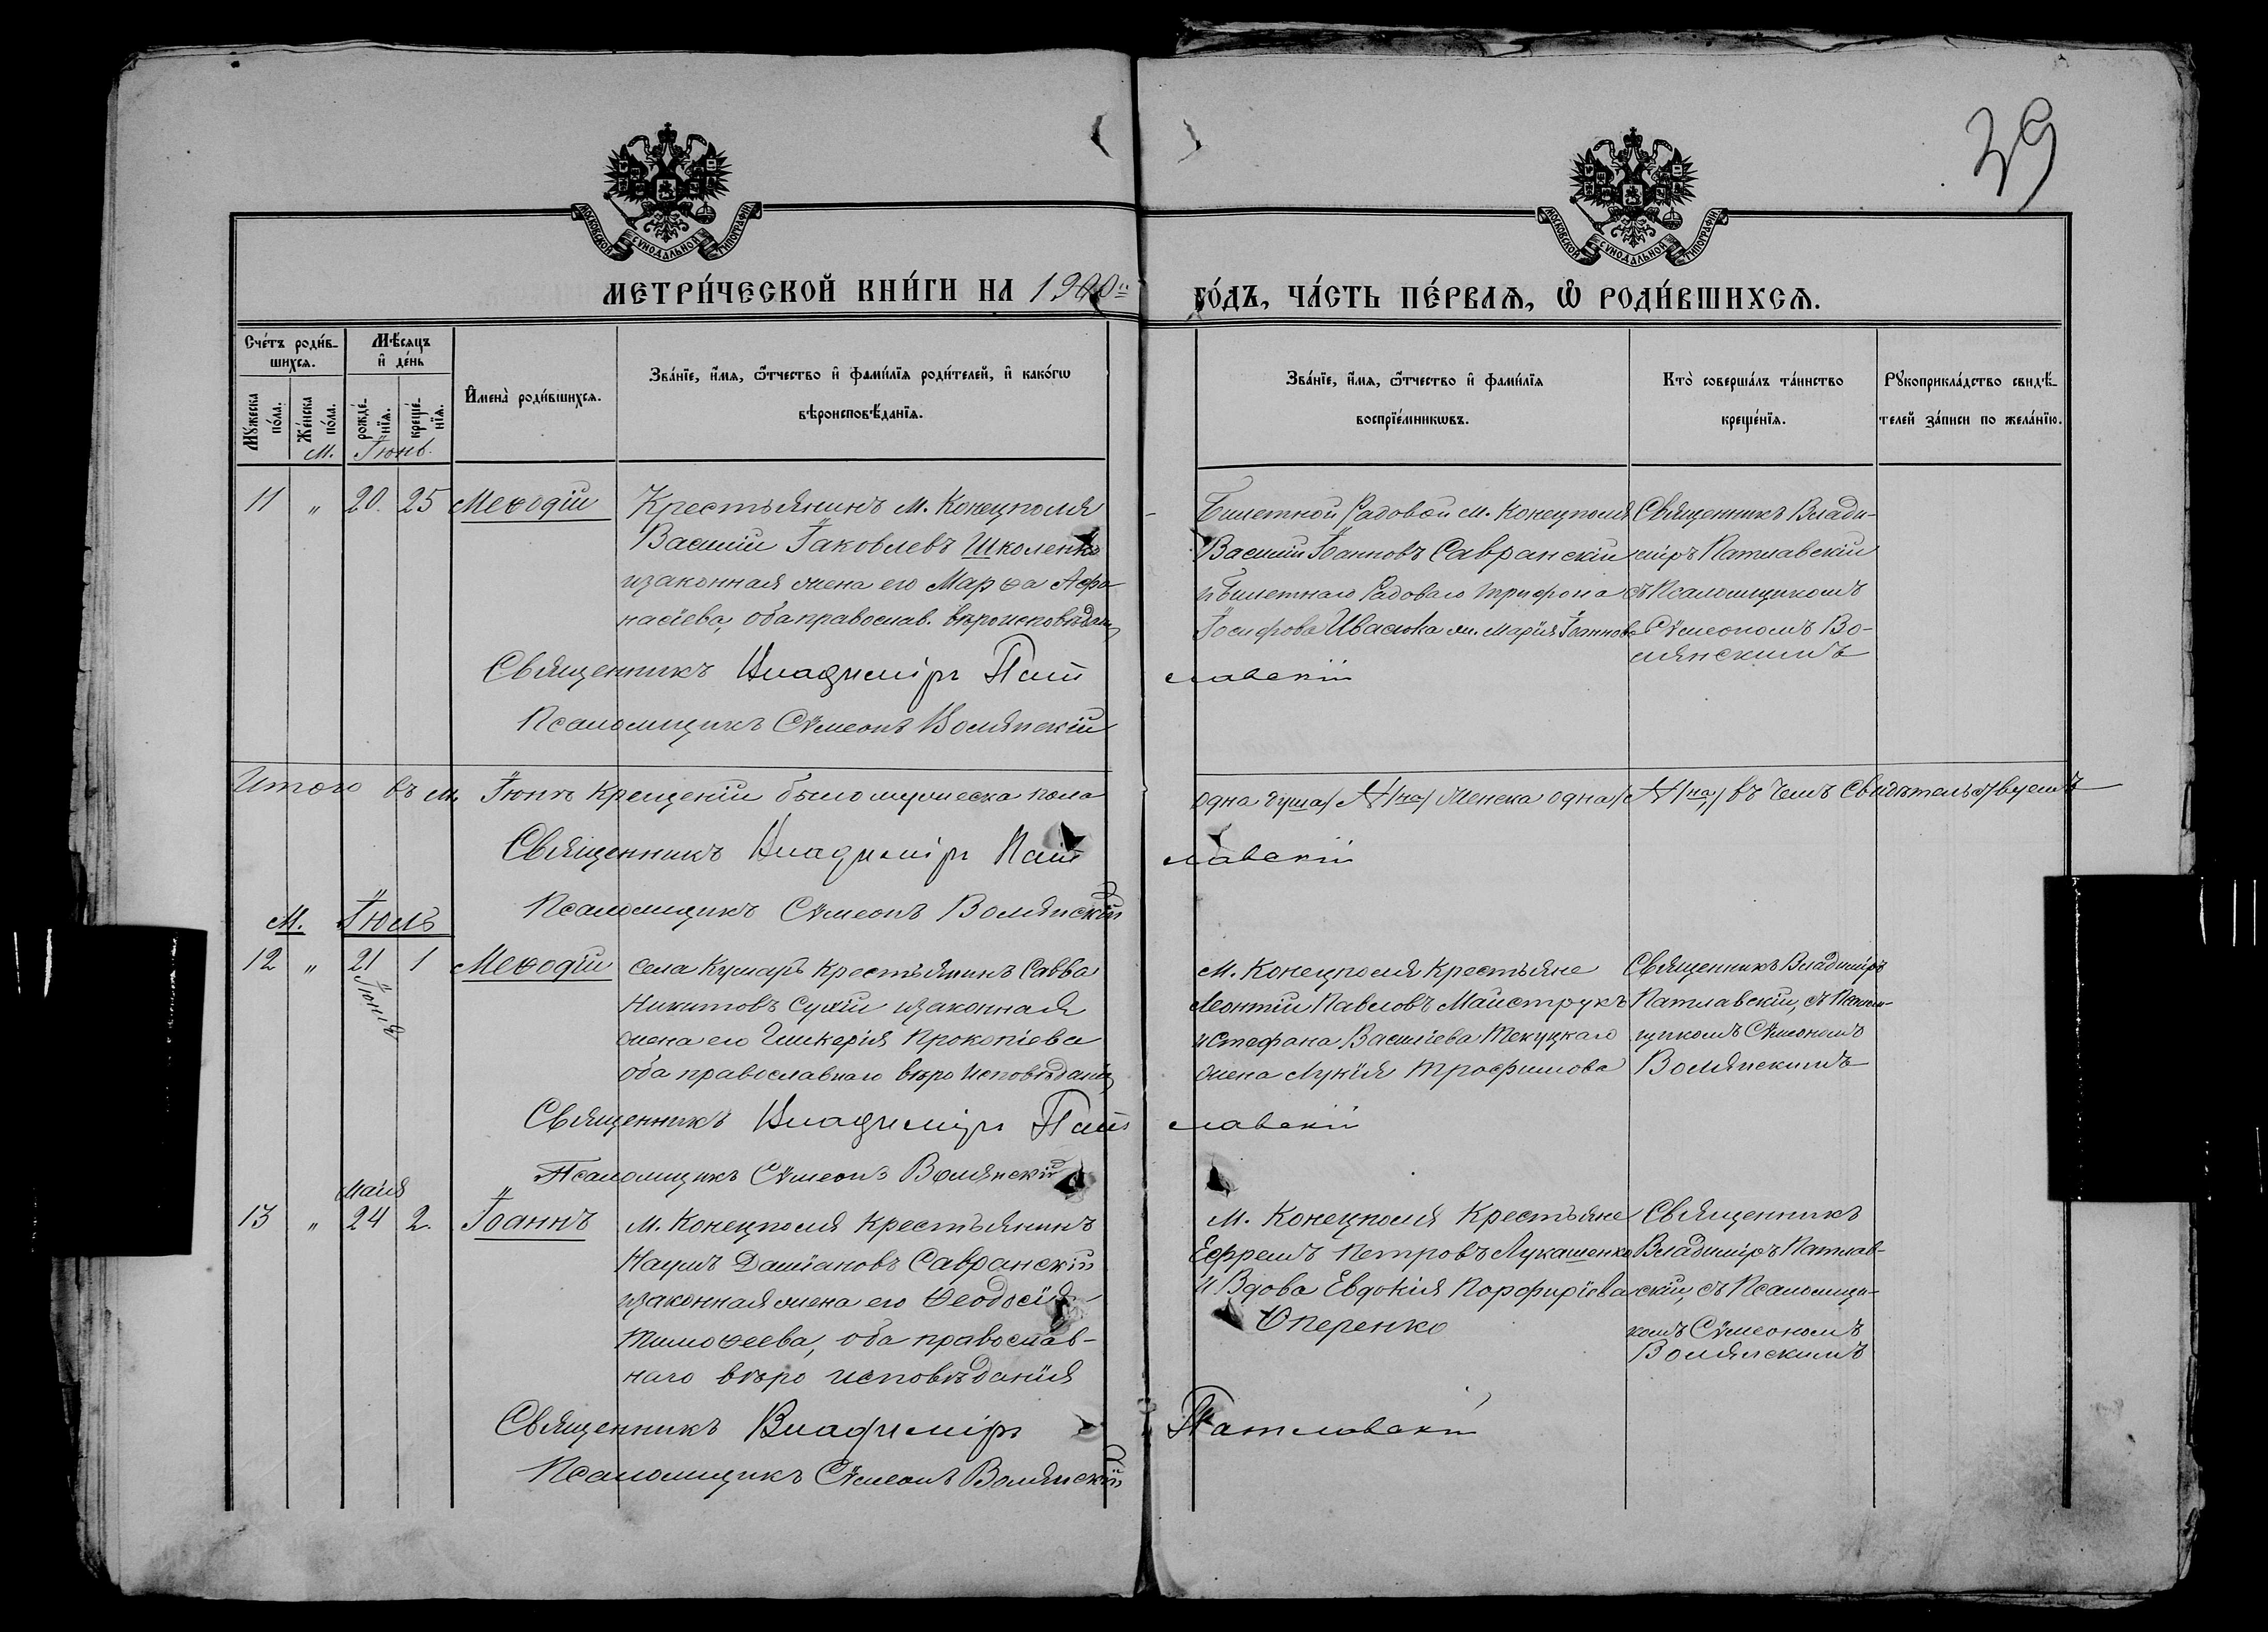 39
МОСКОВСКОЙ СѴНОДАЛЬНОЙ ТИПОГРАФІИ
МОСКОВСКОЙ СѴНОДАЛЬНОЙ ТИПОГРАФІИ
МЕТРИ́ЧЕСКОЙ КНИ́ГИ НА 1900й ГО́ДЪ, ЧА́СТЬ ПЕ́РВАѦ, Ѡ҆ РОДИ́ВШИХСѦ.
Сче́тъ роди́в-
шихсѧ.
Мѣ́сѧцъ
и҆ де́нь
Мꙋ́жеска по́ла.
Же́нска по́ла.
рожде́-нїѧ.
креще́-нїѧ.
И҆мена̀ роди́вшихсѧ.
Зва́нїе, и҆́мѧ, ѻ҆́тчество и҆ фами́лїѧ роди́телей, и҆ како́гѡ
вѣроисповѣ́данїѧ.
Зва́нїе, и҆́мѧ, ѻ҆́тчество и҆ фами́лїѧ
воспрїе́мникѡвъ.
Кто̀ соверша́лъ та́инство
креще́нїѧ.
Рꙋкоприкла́дство свидѣ́-
телей за́писи по жела́нїю.
М. Іюнь.
11 " 20. 25 Меѳодій
Крестьянинъ м. Конецполя
Василій Іаковлевъ Школенко
изаконная жена его Марѳа Афа-
насіева, оба православ. вѣроисповѣдан
Билетной Рядовой м. Конецполя
Василій Іоанновъ Савранскій
и Билетнаго Рядоваго Трифона
Іосифова Ивасюка ж. Марія Іоаннова
Священникъ Влади-
міръ Патлавскій
съ Псаломщикомъ
Сѵмеономъ Во-
лянскимъ
Священникъ Владиміръ Патлавскій
Псаломщикъ Сѵмеонъ Волянскій
Итого въ м. Іюнѣ крещеній было мужеска пола одна душа /А/на/ Женска одна /А/на/ въ чемъ свидѣтельствуемъ
Священникъ Владиміръ Патлавскій
Псаломщикъ Сѵмеонъ Волянскій
М. Іюль
12 " 21 Іюнія 1 Меѳодій
села Кумаръ крестьянинъ Савва
Никитовъ Сухій изаконная
жена его Гликерія Прокопіева
оба православнаго вѣро исповѣданія
м. Конецполя крестьяне
Леонтій Павловъ Майструкъ
и Стефана Василіева Текуцкаго
жена Лукія Трофимова
Священникъ Владиміръ
Патлавскій, съ Псалом-
щикомъ Сѵмеономъ
Волянскимъ
Священникъ Владиміръ Патлавскій
Псаломщикъ Сѵмеонъ Волянскій
Маія
13 " 24 2. Іоаннъ
м. Конецполя крестьянинъ
Наумъ Даміановъ Савранскій
изаконная жена его Ѳеодосія
Тимоѳеева, оба православ-
наго вѣро исповѣданія
м. Конецполя Крестьяне
Ефремъ Петровъ Лукашенко
и Вдова Евдокія Порфиріева
Оперенко
Священникъ
Владиміръ Патлав-
скій, съ Псаломщи-
комъ Сѵмеономъ
Волянскимъ
Священникъ Владиміръ Патлавскій
Псаломщикъ Сѵмеонъ Волянскій